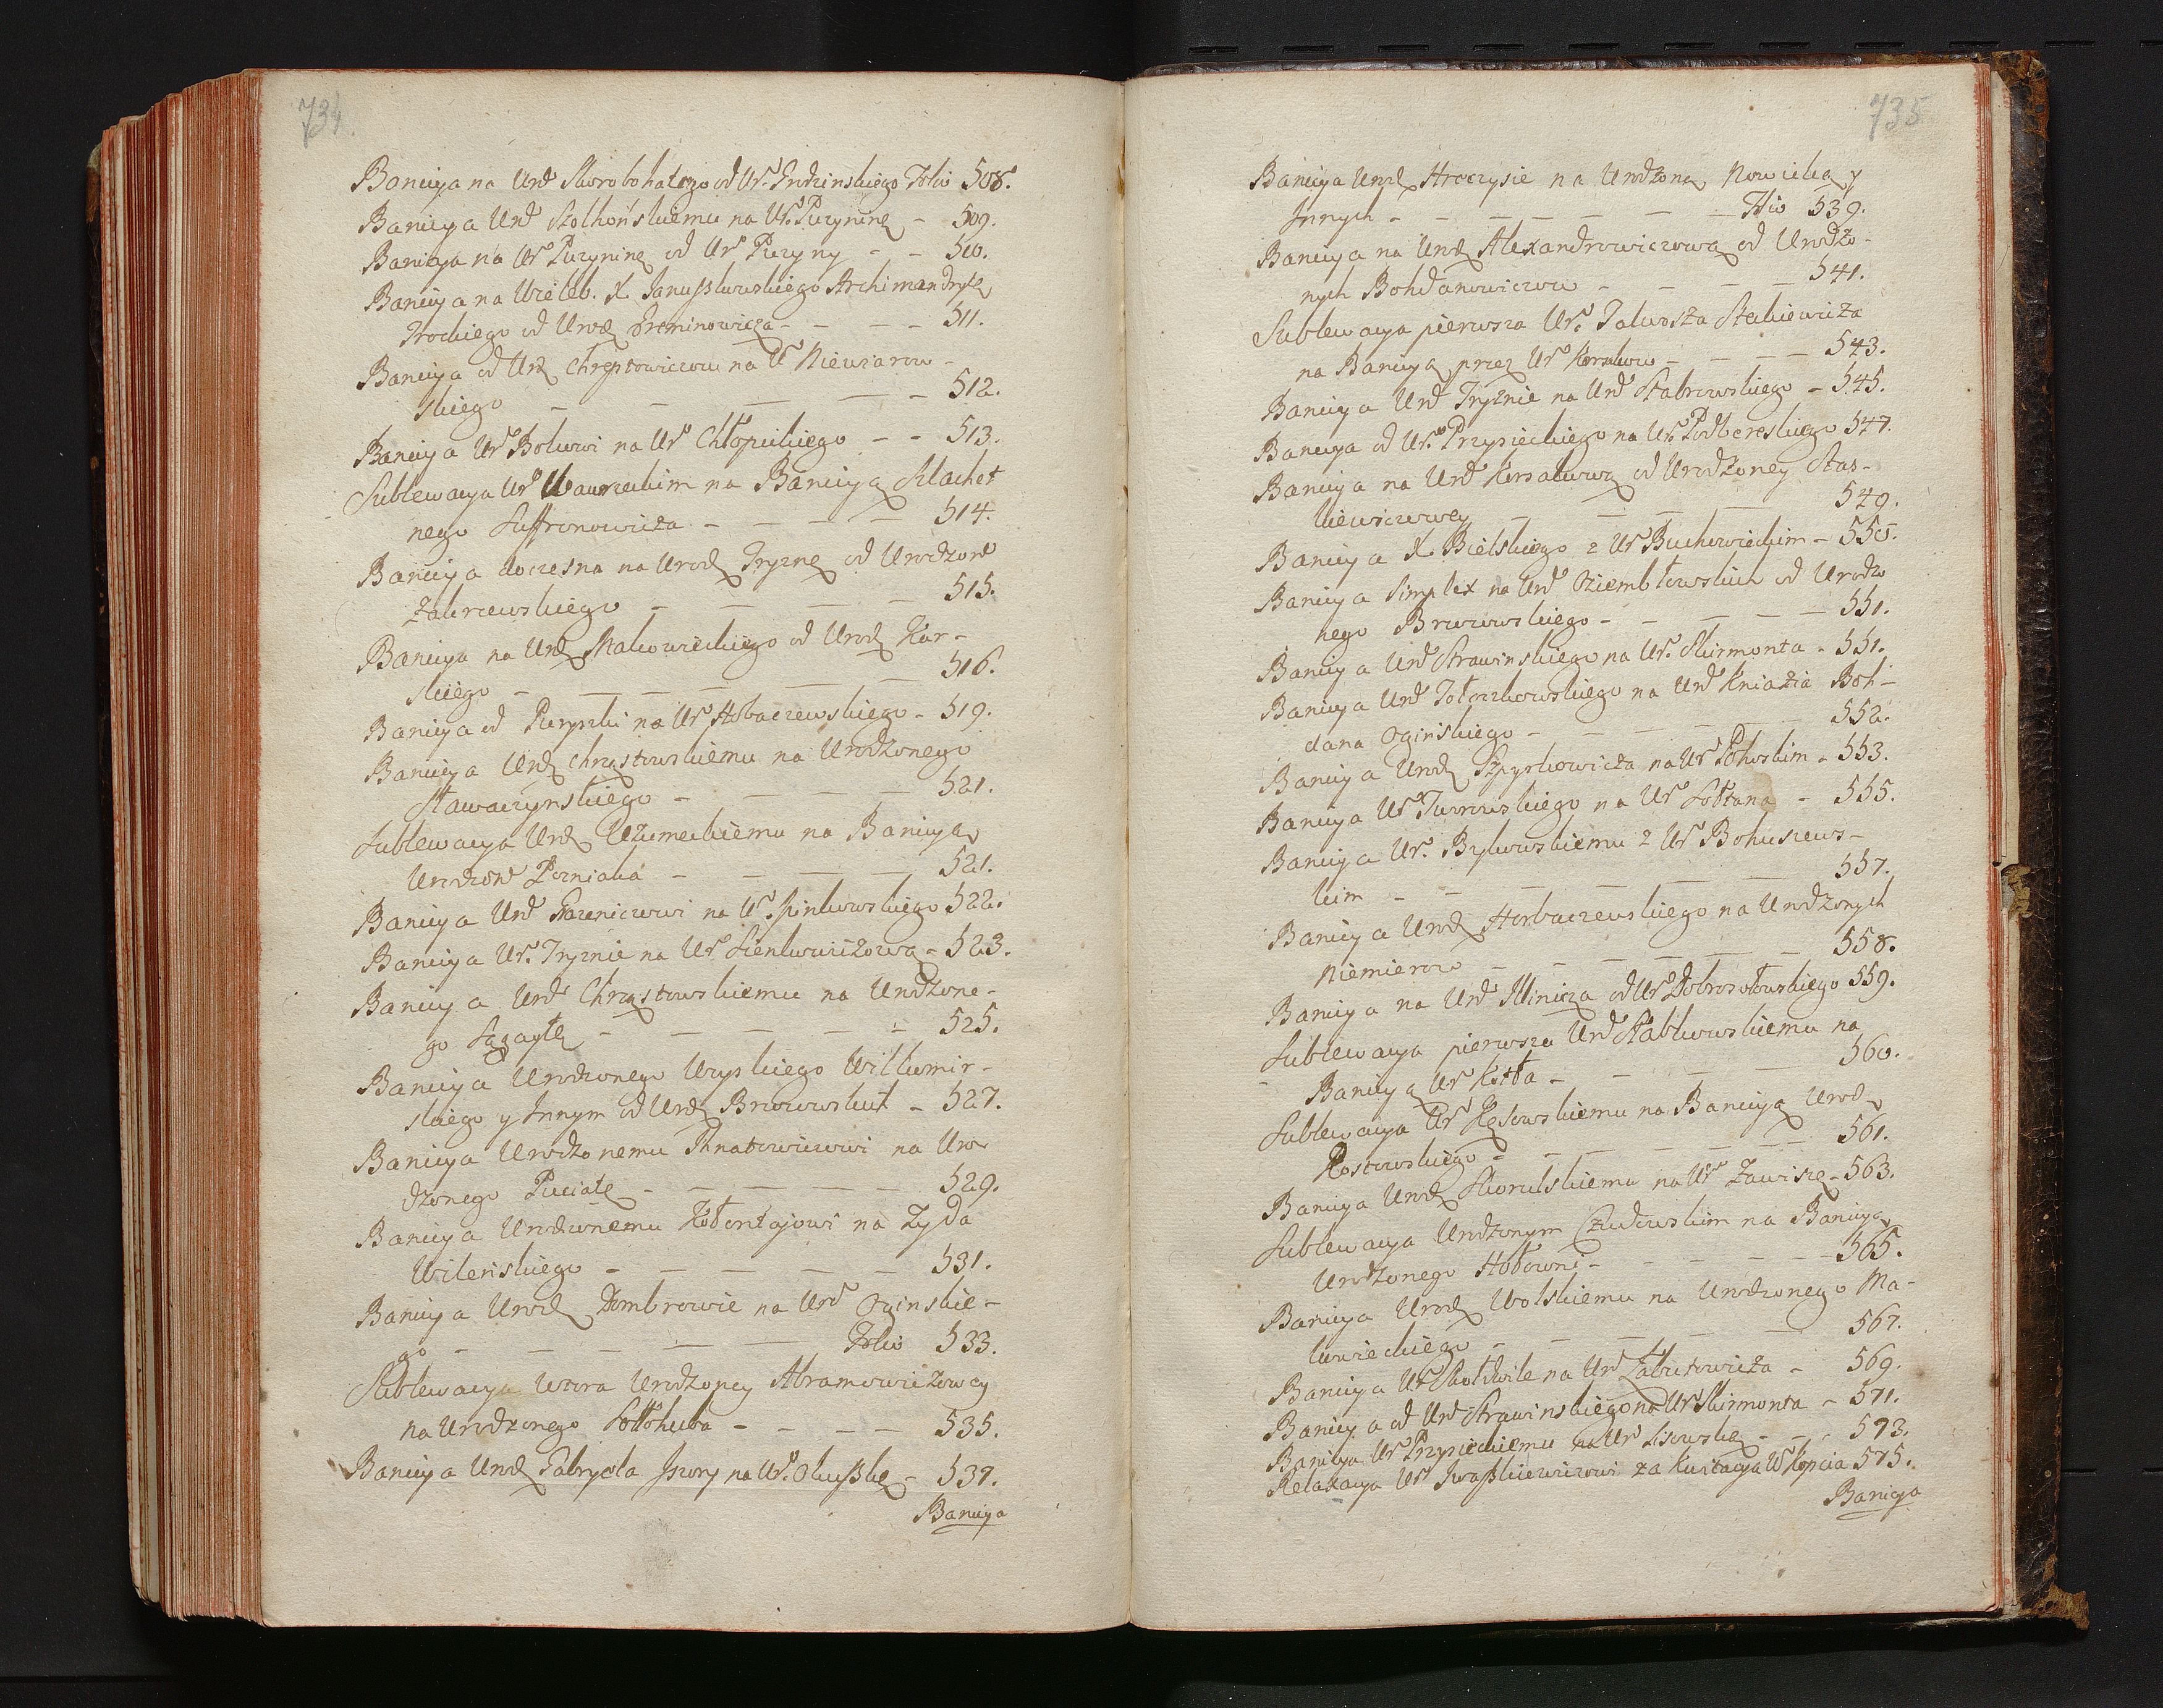 734.
Banicya na Urd Skorobohatego od Ur. Grodzinskiego Folio 508.
Banicya Urd Szolkońskiemu na Ur. Puzyninę - 509.
Banicya na Ur Puzyninę od Ur Puzyny - - 510.
Banicya na Wieleb. X. Januszkowskiego Archimandrytę
Trockiego od Urod Freminowicza - - - - 511.
Banicya od Urd Chreptowiczow na Ur Niewiarow-
skiego - - - - - 512.
Banicya Ur Bokowi na Ur Chłopickiego - - 513.
Sublewacya Ur Wawrzeckim na Banicyą Szlachet
nego Saffronowicza - - - - 514.
Banicya doczesna na Urod Tryznę od Urodzone
Zakrzewskiego - - - - 515.
Banicya na Urd Makowieckiego od Urod Kar-
skiego - - - - - - 516.
Banicya od Puryszki na Ur Hobaczewskiego - 519.
Banicya Urd Chrząstowskiemu na Urodzonego
Sławaczynskiego - - - - 521.
Sublewacya Urd Użumeckiemu na Banicyą
Urodzone Pozniaka - - - - 521.
Banicya Urd Hreniczowi na Ur. Pinkowskiego 522.
Banicya Ur. Tryznie na Ur Sienkiewiczową - 523.
Banicya Urd Chrząstowskiemu na Urodzone-
go Sągaytę - - - - - 525.
Banicya Urodzonego Uzyskiego Wiłkomir-
skiego y Innym od Urd Brzozowskich - 527.
Banicya Urodzonemu Ihnatowiczowi na Uro
dzonego Puciatę - - - - - 529.
Banicya Urodzonemu Kołontajowi na Zyda
Wileńskiego - - - - - 531.
Banicya Urod Dombrowie na Urd Oginskie-
go - - - - - Folio 533.
Sublewacya wtora Urodzoney Abramowiczowey
na Urodzonego Sołłohuba - - - - 535.
Banicya Urod Gabryela Jzory na Ur. Okuszkę - 537.
Banicya
735
Banicya Urod Hreczysie na Urodzoną Nowicką y
Innych - - - - - - Folio 539.
Banicya na Urod Alexandrowiczową od Urodzo-
nych Bohdanowiczow - - - - 541.
Sublewacya pierwsza Ur. Talwosza Steckiewicza
na Banicyą przez Ur Korsakow - - - - 543.
Banicya Urd Tryznie na Urd Stabrowskiego - 545.
Banicya od Ur. Przysieckiego na Ur. Podbereskiego 547.
Banicya na Urd Korsakową od Urodzoney Stas-
kiewiczowey - - - - 549.
Banicya X. Bielskiego z Ur Buchowieckim - 550.
Banicya Simplex na Urd Oziembłowskich od Urodzo
nego Brzozowskiego - - - - - 551.
Banicya Urd Strawinskiego na Ur. Skirmonta - 551.
Banicya Urd Tołoczkowskiego na Urd Kniazia Boh-
dana Oginskiego - - - - - 552.
Banicya Urod Szpyrkowicza na Ur Pohoskim - 553.
Banicya Ur Turowskiego na Ur Sołtana - 555.
Banicya Ur. Bykowskiemu z Ur Bohuszews-
kim - - - - - - 557.
Banicya Urod Horbaczewskiego na Urodzonych
Niemierow - - - - - - 558.
Banicya na Urd Jllinicza od Ur Dobrosołowskiego 559.
Sublewacya pierwsza Urd Stabkowskiemu na
Banicyą Ur Kotła - - - - 560.
Sublewacya Ur Kęsowskiemu na Banicyą Urod
Rostowskiego - - - - - - 561.
Banicya Urod Skorulskiemu na Ur Zawiszę - 563.
Sublewacya Urodzonym Czudowskim na Banicyą
Urodzonego Hołowni - - - - - 565.
Banicya Urod Wolskiemu na Urodzonego Ma-
kowieckiego - - - - - 567.
Banicya Ur Chodźwile na Urd Zabutowicza - 569.
Banicya od Urd Strawinskiego na Ur Skirmonta - 571.
Banicya Ur Przysieckiemu na Ur Lisowskę - - - 573.
Relaxacya Ur Jwaszkiewiczowi za Kwitacyą W Kopcia 575.
Banicya